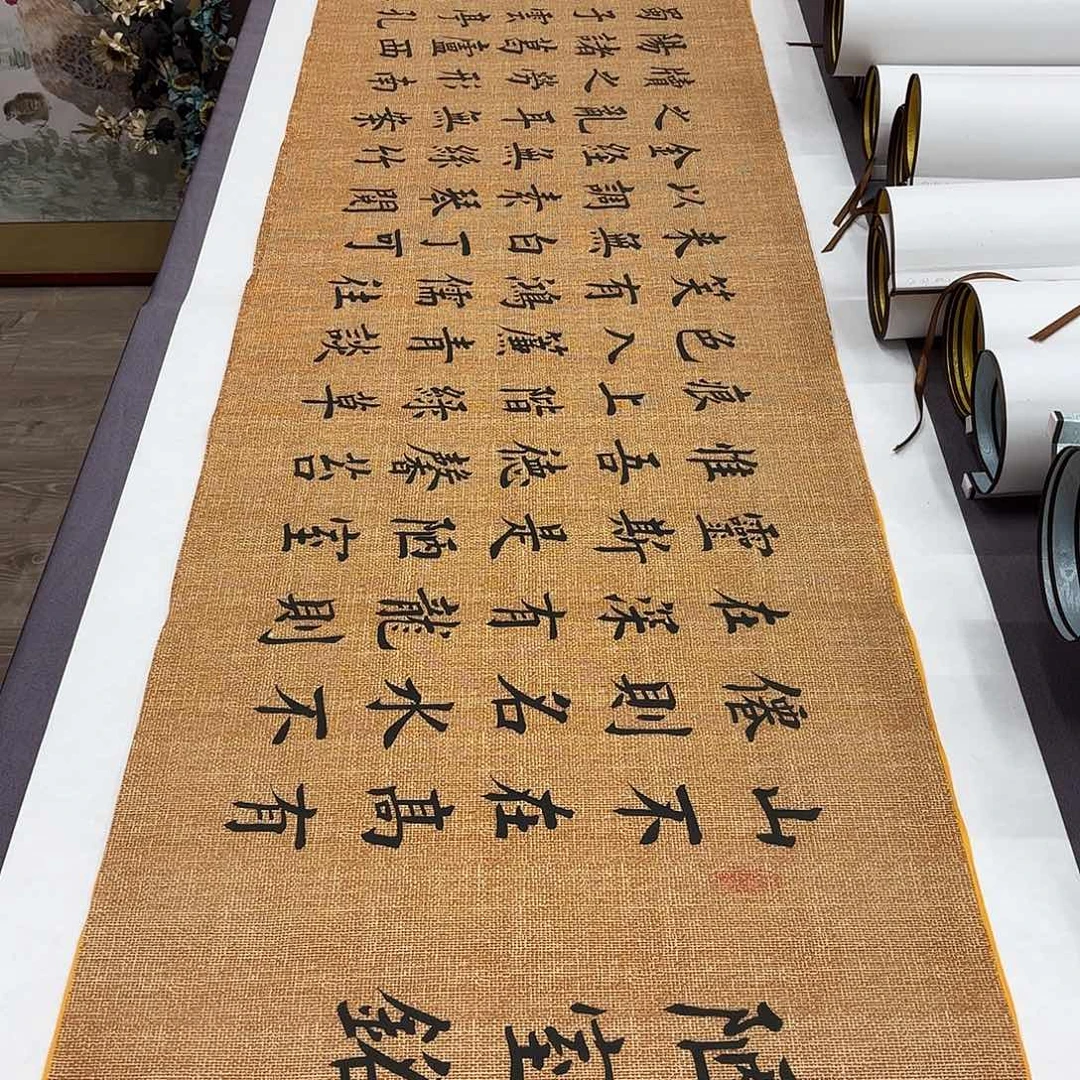 陋室銘
山不在髙有
僊則名水不
在深有龍則
靈斯是陋室
惟吾德馨苔
痕上階綠草
色入簾青談
笑有鴻儒往
来無白丁可
以調素琴閱
金経無絲竹
之亂耳無案
牘之勞形南
陽諸葛廬西
蜀子雲亭孔